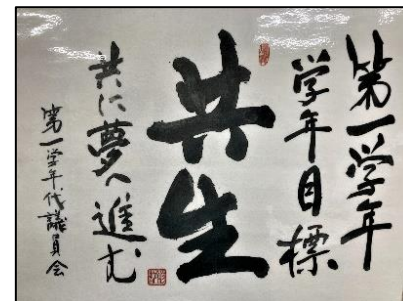 第一学年
学年目標
共生
共に夢へ進む
第一学年代議員会